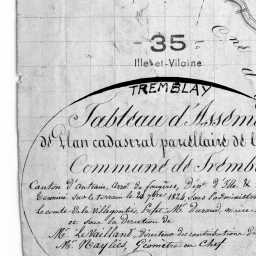 - 35 -
Ille-et-Vilaine
TREMBLAY
Tableau d'Assem
de Plan cadastral parcellaire de l
Commune de Trembl
Canton d'Antrain, Arrt de fougères, Dépt d'Ille &
Terminé sur le terrain le 24 1824, sous l'administrat
le comte de la Villegontier, Préfet Mr Durand, maire
et sous la direction de
Mr Le Vaillant, Directeur des contributions
Mr Haylies, Géomètre en Chef